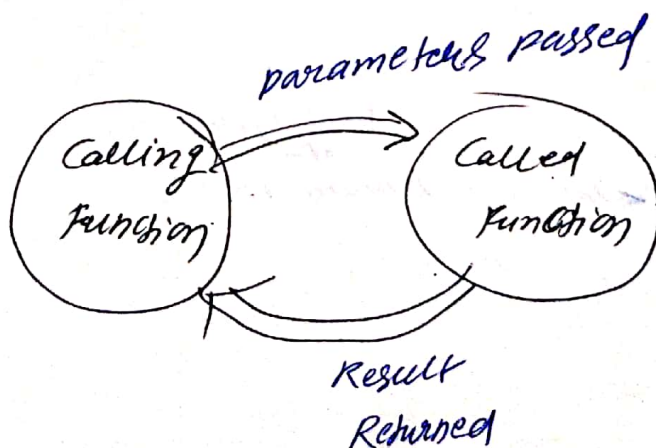 parameters passed
Calling
Function
Called
Function
Result
Returned